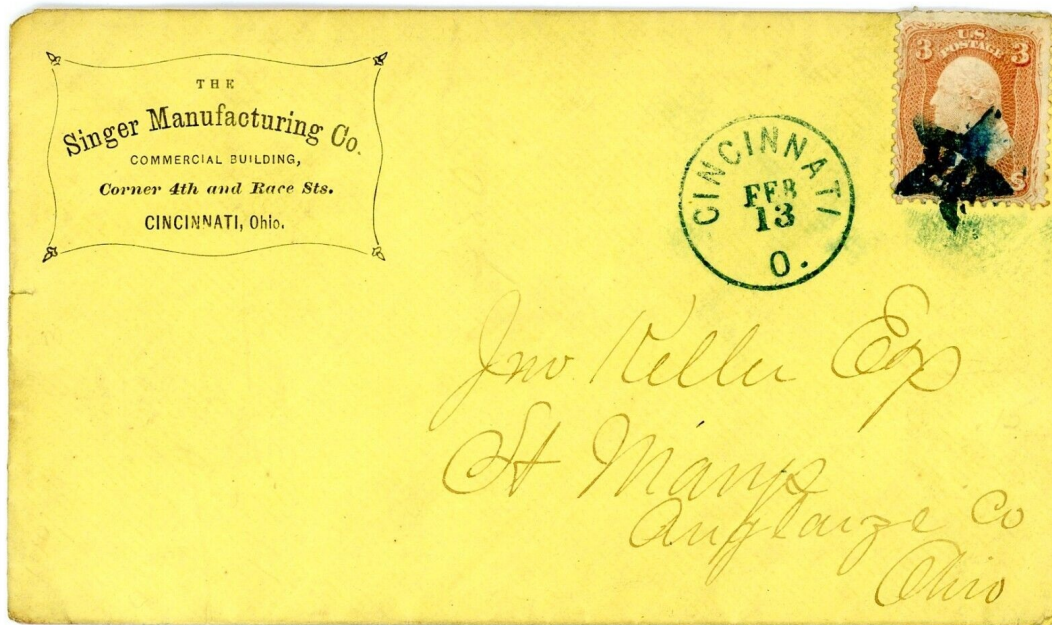 THE
Singer Manufacturing Co.
COMMERCIAL BUILDING,
Corner 4th and Race Sts.
CINCINNATI, Ohio.
CINCINNATI
FEB
13
O.
3 U.S. 3
POSTAGE
S
Jno Keller Esq
St Marys
Auglaize Co
Ohio